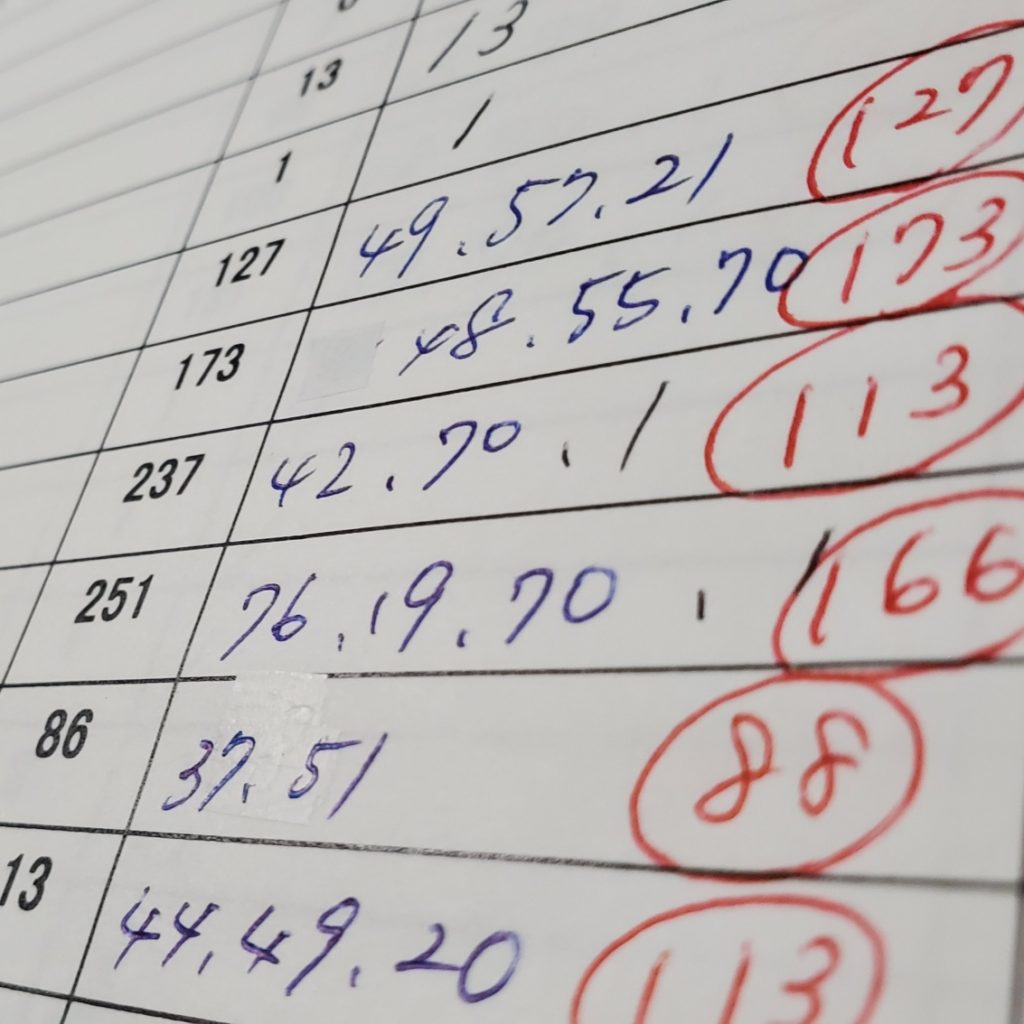 13 13
1 1
127 49.57.21 127
173 48.55.70 173
237 42.70.1 113
251 76.19.70.1 166
86 37.51 88
13 44.49.20 113